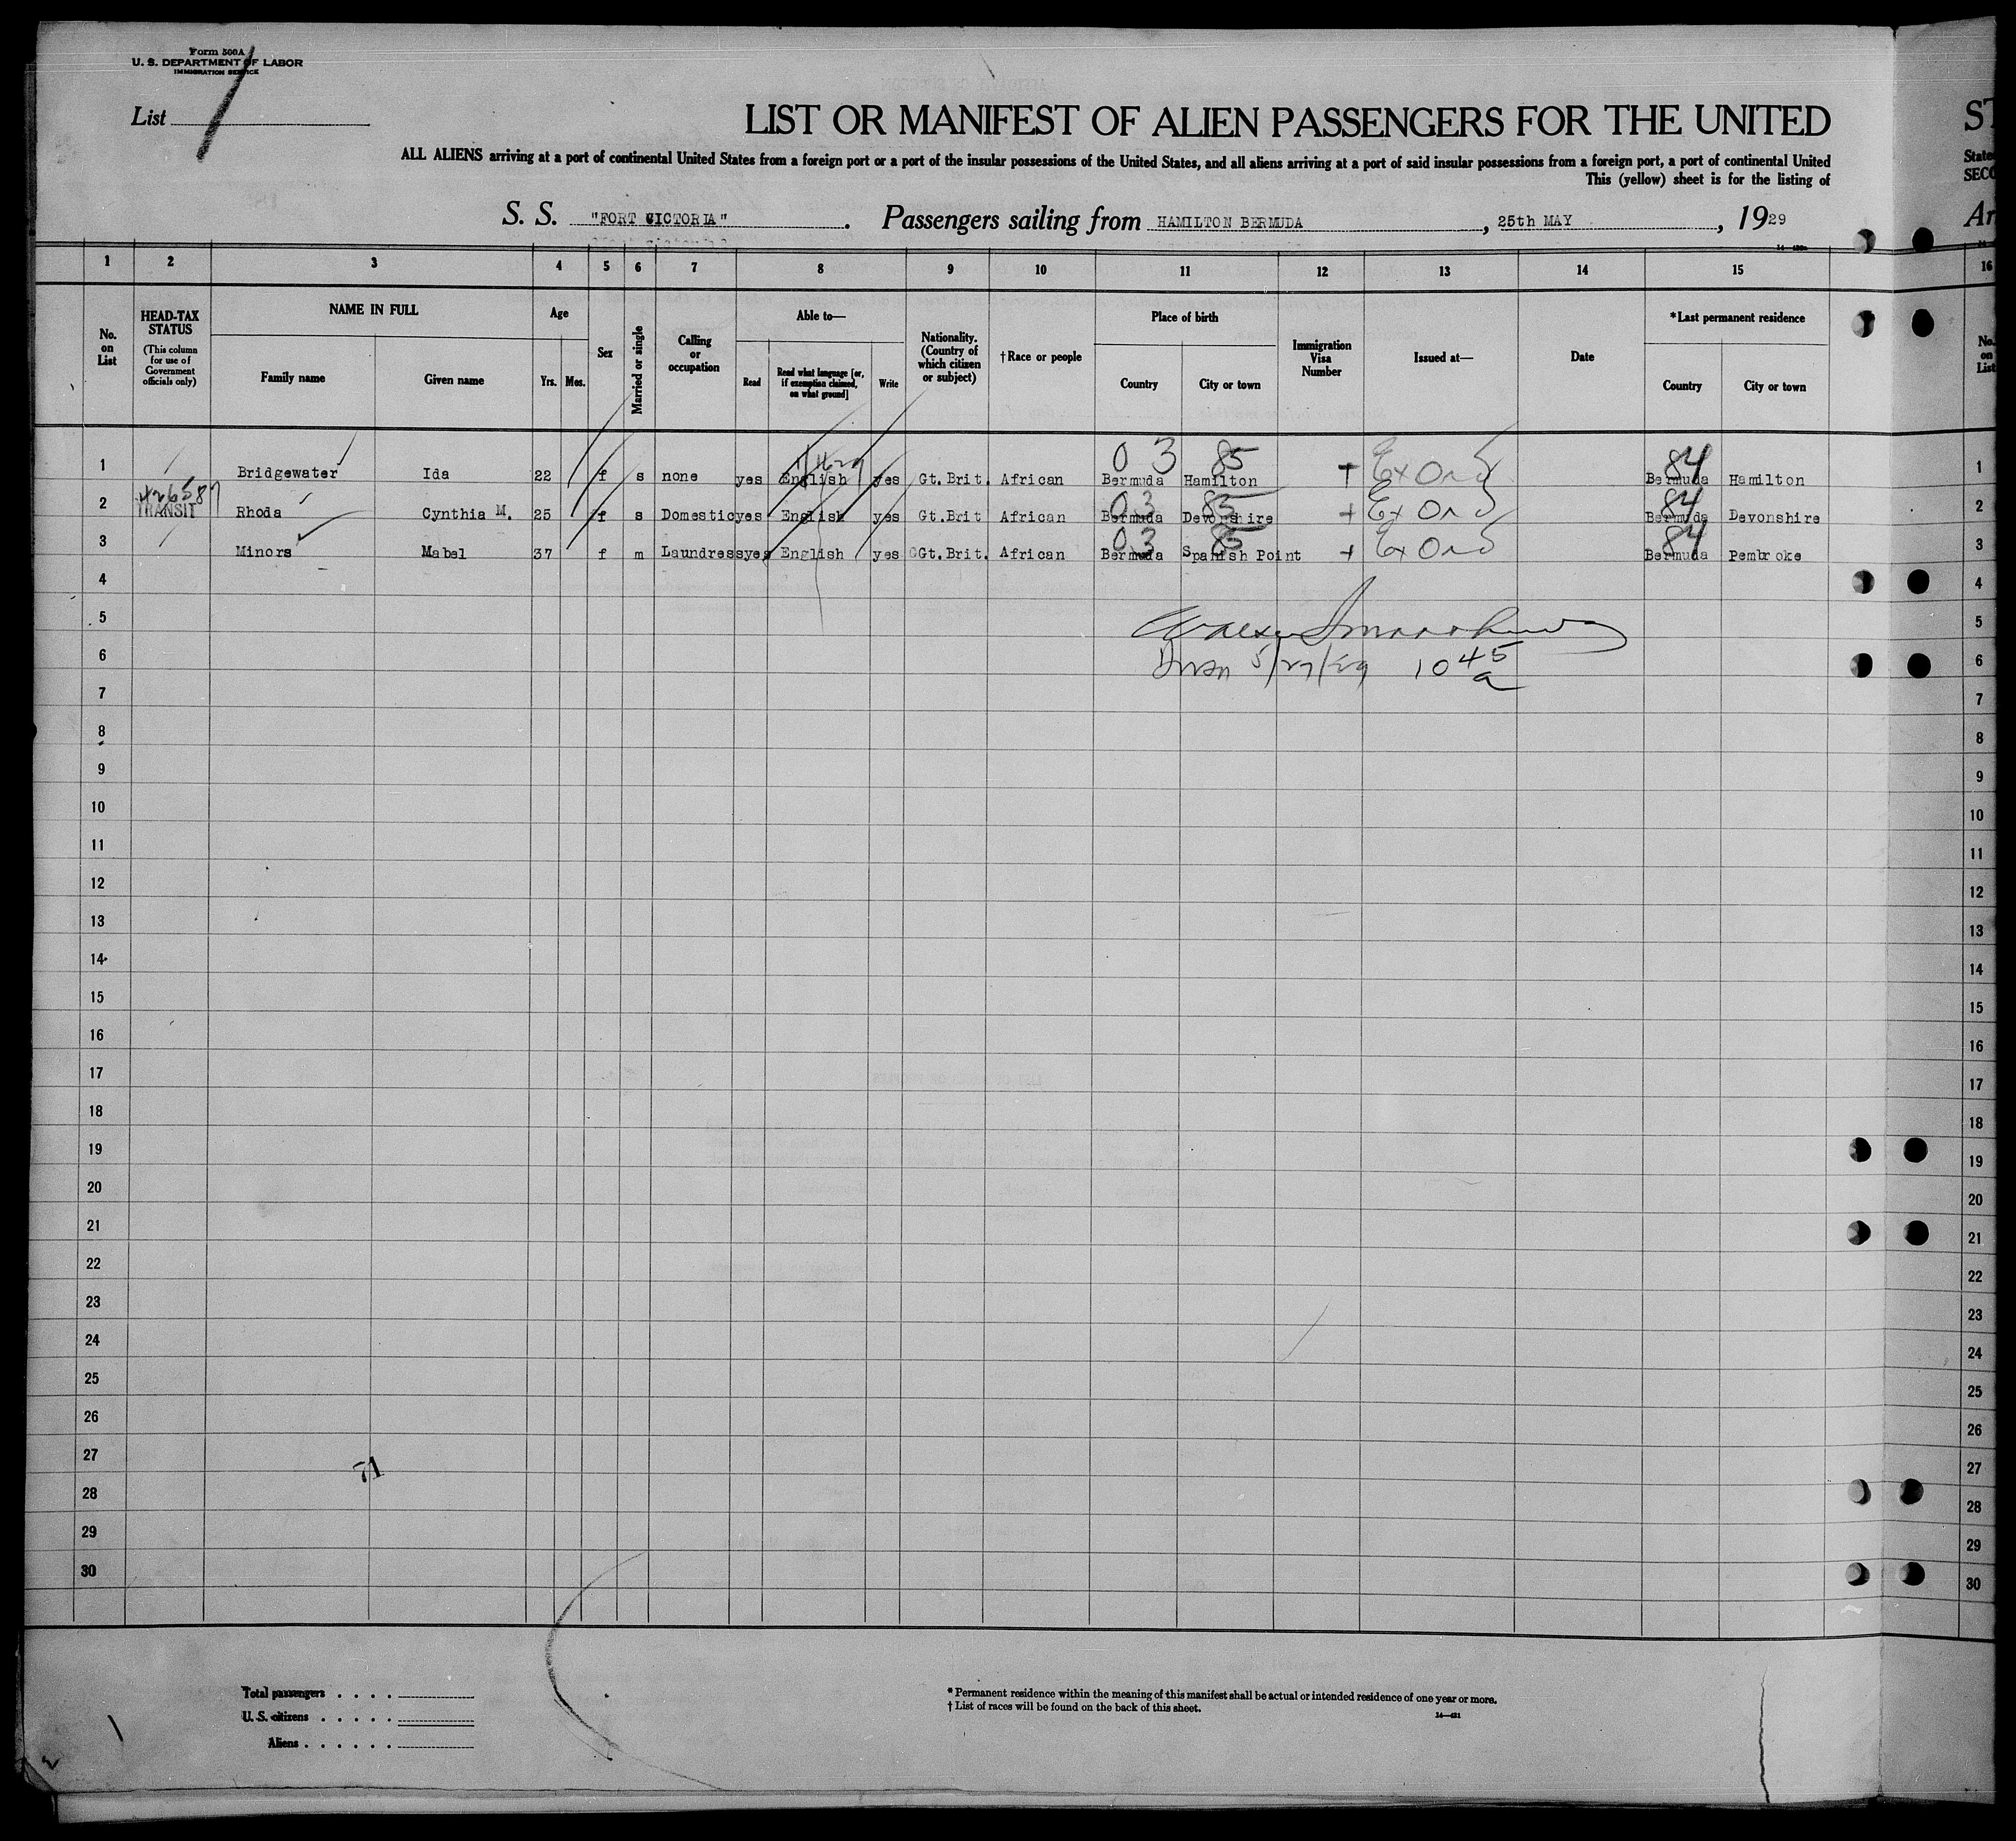 Form 500A
U. S. DEPARTMENT OF LABOR
IMMIGRATION SERVICE
List 1
LIST OR MANIFEST OF ALIEN PASSENGERS FOR THE UNITED
ST
ALL ALIENS arriving at a port of continental United States from a foreign port or a port of the insular possessions of the United States, and all aliens arriving at a port of said insular possessions from a foreign port, a port of continental United
State
This (yellow) sheet is for the listing of
SECO
S. S. "FORT VICTORIA". Passengers sailing from HAMILTON BERMUDA, 25th MAY, 1929
Ar
1 2 3 4 5 6 7 8 9 10 11 12 13 14 15 16
No. on List
HEAD-TAX STATUS
(This column for use of Government officials only)
NAME IN FULL
Family name
Given name
Age
Yrs.
Mos.
Sex
Married or single
Calling or occupation
Able to—
Read
Read what language [or, if exemption claimed, on what ground]
Write
Nationality. (Country of which citizen or subject)
†Race or people
Place of birth
Country
City or town
Immigration Visa Number
Issued at—
Date
*Last permanent residence
Country
City or town
No. on List
03 85 84
1 Bridgewater Ida 22 f s none yes English yes Gt. Brit. African Bermuda Hamilton Bermuda Hamilton 1
42658
TRANSIT
03 85 84
2 Rhoda Cynthia M. 25 f s Domestic yes English yes Gt. Brit African Bermuda Devonshire Bermuda Devonshire 2
03 85 84
3 Minors Mabel 37 f m Laundress yes English yes Gt. Brit. African Bermuda Spanish Point Bermuda Pembroke 3
4 4
5 5
5/27/29 10 45 a
6 6
7 7
8 8
9 9
10 10
11 11
12 12
13 13
14 14
15 15
16 16
17 17
18 18
19 19
20 20
21 21
22 22
23 23
24 24
25 25
26 26
27 27
71
28 28
29 29
30 30
Total passengers . . . .
U. S. citizens . . . . .
Aliens . . . . . .
* Permanent residence within the meaning of this manifest shall be actual or intended residence of one year or more.
† List of races will be found on the back of this sheet.